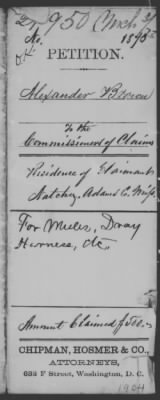 No. 950
O.K.
PETITION.
Alexander Brown
To the
Commissioners of Claims
Residence of Claimant
Natchez, Adams Co. Miss
For Mules, Dray
Harness, &c.
Amount Claimed
CHIPMAN, HOSMER & CO.,
ATTORNEYS,
632 F Street, Washington, D. C.
1904